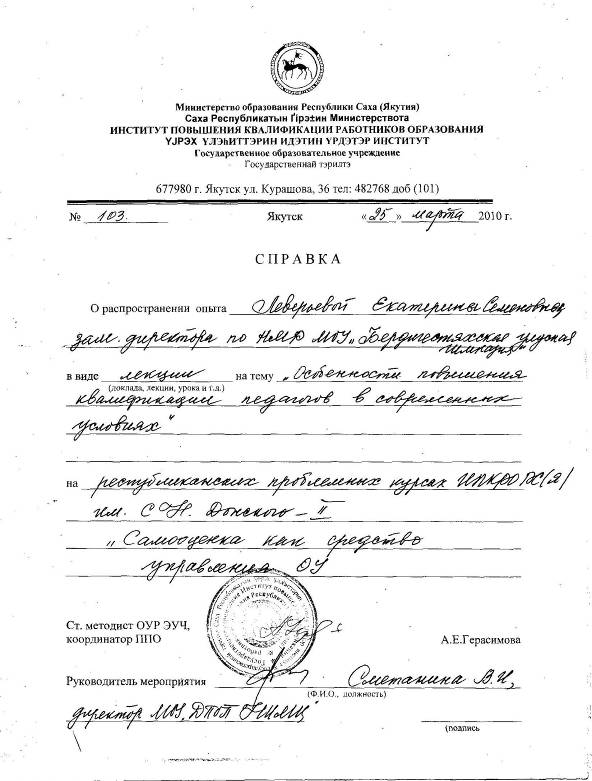 Министерство образования Республики Саха (Якутия)
Саха Республикатын Ґірэ±ин Министерствота
ИНСТИТУТ ПОВЫШЕНИЯ КВАЛИФИКАЦИИ РАБОТНИКОВ ОБРАЗОВАНИЯ
ҮЈРЭХ ҮЛЭҺИТТЭРИН ИДЭТИН ҮРДЭТЭР ИНСТИТУТ
Государственное образовательное учреждение
Государственнай тэрилтэ
677980 г. Якутск ул. Курашова, 36 тел: 482768 доб (101)
№ 103. Якутск «25» марта 2010 г.
СПРАВКА
О распространении опыта Леверьевой Екатерины Семеновны
зам. директора по НМР МОУ „Бердигестяхская улусная
гимназия"
в виде лекции на тему „Особенности повышения
(доклада, лекции, урока и т.д.)
квалификации педагогов в современных
условиях"
на республиканских проблемных курсах ИПКРО РС(Я)
им. С.Н. Донского-II
„Самооценка как средство
управления ОУ
Ст. методист ОУР ЭУЧ,
координатор ППО А.Е.Герасимова
Руководитель мероприятия Сметанина В.И,
(Ф.И.О., должность)
директор МОУ ДПОП
(подпись